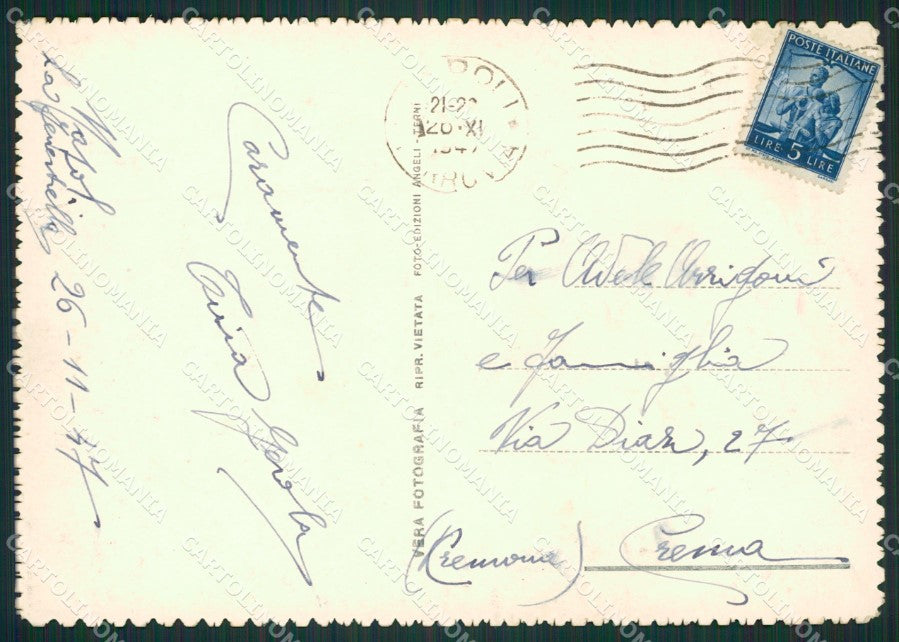 Napoli
26-11-47
Caramente
Gerola
VERA FOTOGRAFIA RIPR. VIETATA FOTO-EDIZIONI ANGELI - TERNI
21-22
XI
POSTE ITALIANE
LIRE 5 LIRE
Per Adele Arrigoni
e famiglia
Via Diaz, 27
(Cremona) Crema
CARTOLINOMANIA